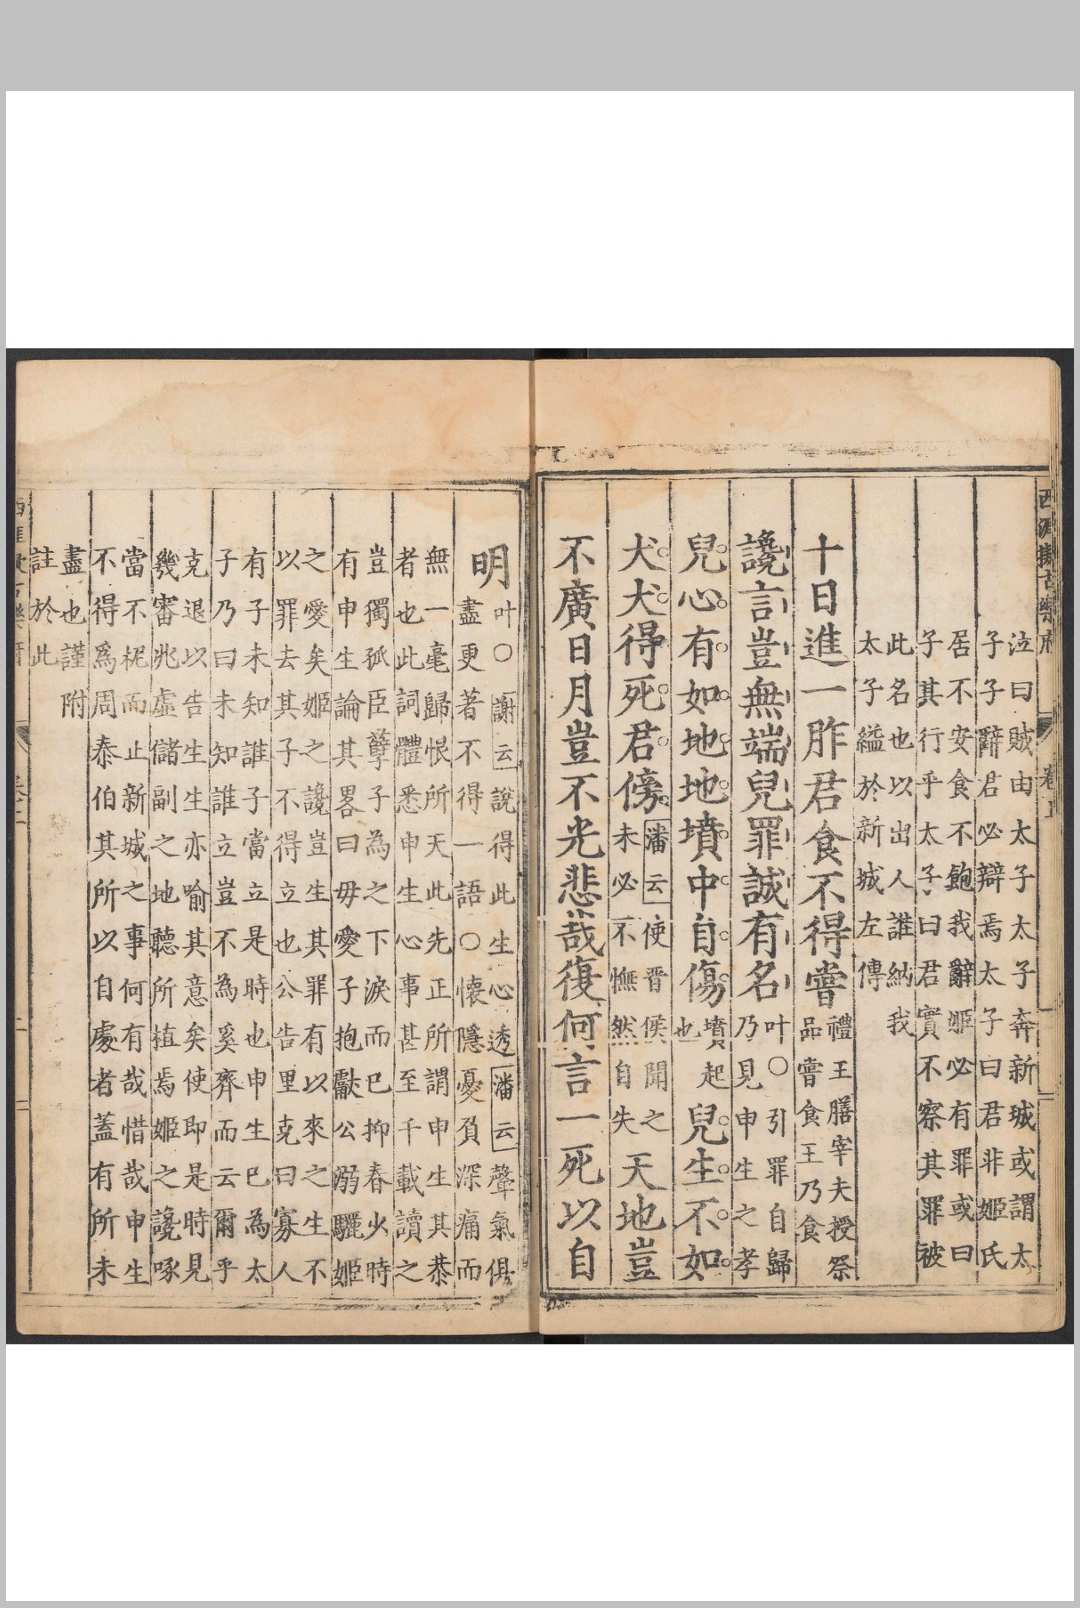 泣曰賊由太子太子奔新城或謂太
子子辭君必辯焉太子曰君非姬氏
居不安食不飽我辭姬必有罪或曰
子其行乎太子曰君實不察其罪被
此名也以出人誰納我
太子縊於新城左傳
十日進一胙君食不得嘗
禮王膳宰夫授祭
品嘗食王乃食
讒言豈無端兒罪誠有名
叶〇引罪自歸
乃見申生之孝
兒心有如地地墳中自傷
墳起
也
兒生不如
犬犬得死君傍
潘云使晉侯聞之
未必不憮然自失
天地豈
不廣日月豈不光悲哉復何言一死以自
明
叶〇謝云說得此生心透潘云聲氣俱
盡更著不得一語〇懷隱憂負深痛而
無一毫歸恨所天此先正所謂申生其恭
者也此詞體悉申生心事甚至千載讀之
豈獨孤臣孽子為之下淚而已抑春火時
有申生論其畧曰毋愛子抱獻公溺驪姬
之愛矣姬之讒豈生其罪有以來之生不
以罪去其子不得立也公告里克曰寡人
有子未知誰子當立是時也申生已為太
子乃曰未知誰立豈不為奚齊而云爾乎
克退以告生生亦喻其意矣使即是時見
幾審兆虛儲副之地聽所植焉姬之讒啄
當不柅而止新城之事何有哉惜哉申生
不得爲周泰伯其所以自處者蓋有所未
盡也謹附
註於此